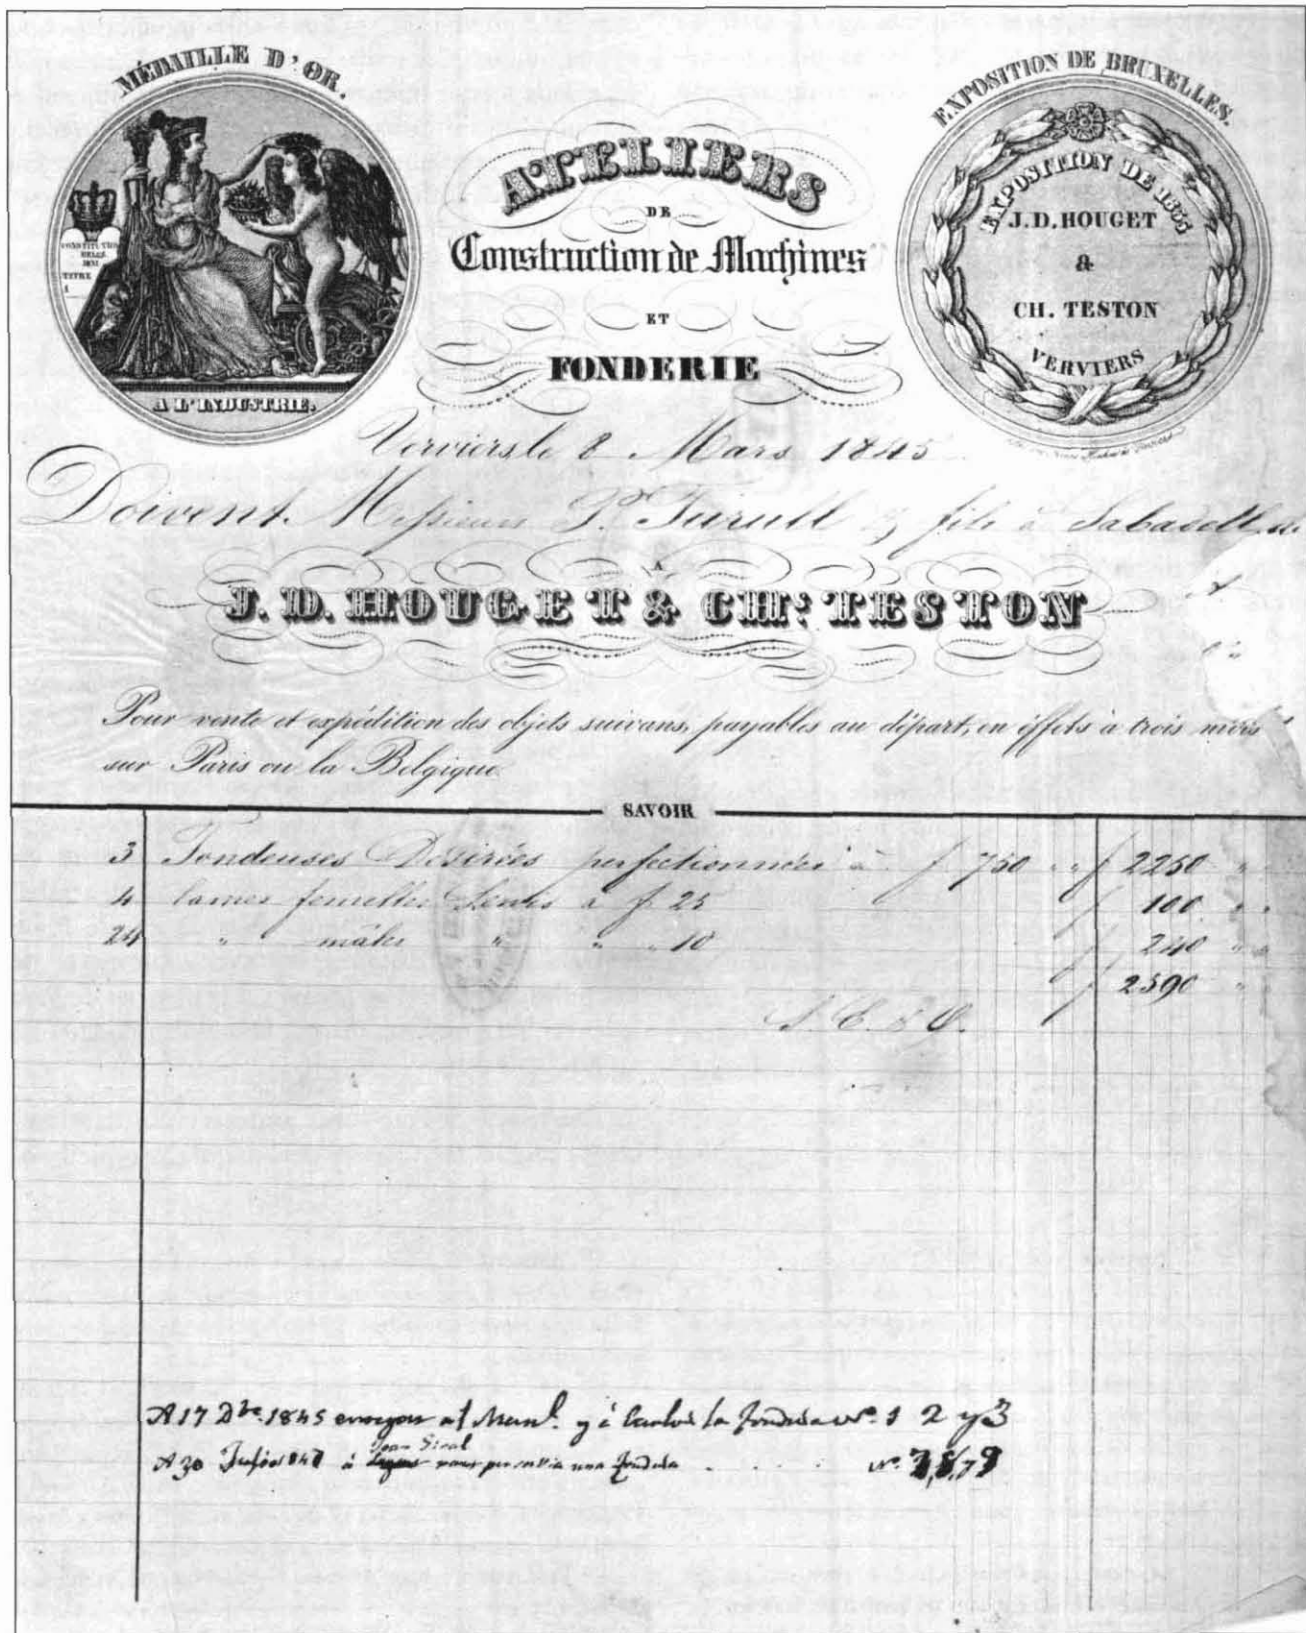 MÉDAILLE D'OR.
CONSTITUTION
BELGE
TITRE
A L'INDUSTRIE.
ATELIERS
DE
Construction de Machines
ET
FONDERIE
EXPOSITION DE BRUXELLES.
EXPOSITION DE 1835
J.D. HOUGET
&
CH. TESTON
VERVIERS
Verviers, le 8 Mars 1845
Doivent Messieurs P. Turull & fils à Sabadell
A
J. D. HOUGET & CHS TESTON
Pour vente et expédition des objets suivans, payables au départ, en éffets à trois mois
sur Paris ou la Belgique.
SAVOIR
3 Tondeuses Désirées perfectionnées à f 750 " f 2250 "
4 lames femelles Lewis à f 25 f 100 "
24 " mâles " " " 10 f 240 "
f 2590 "
S. E. & O.
A 17 Dbe. 1845 al Manl. y à Carlos la fondusa No. 1 2 y 3
A 30 à Joan una No.